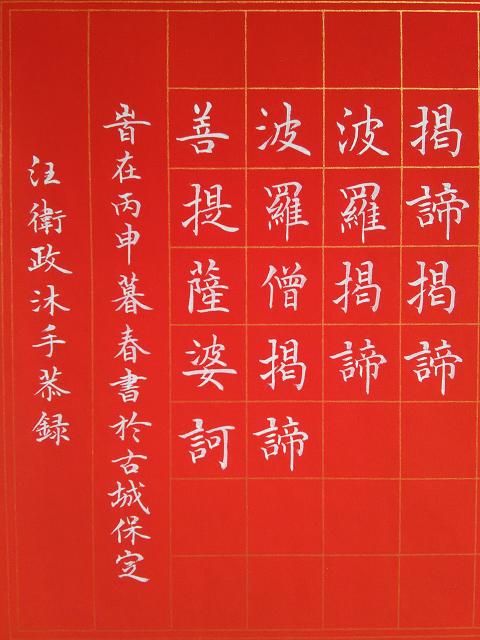 揭諦揭諦
波羅揭諦
波羅僧揭諦
善提薩婆訶
旹在丙申暮春書於古城保定
汪衛政沐手恭録